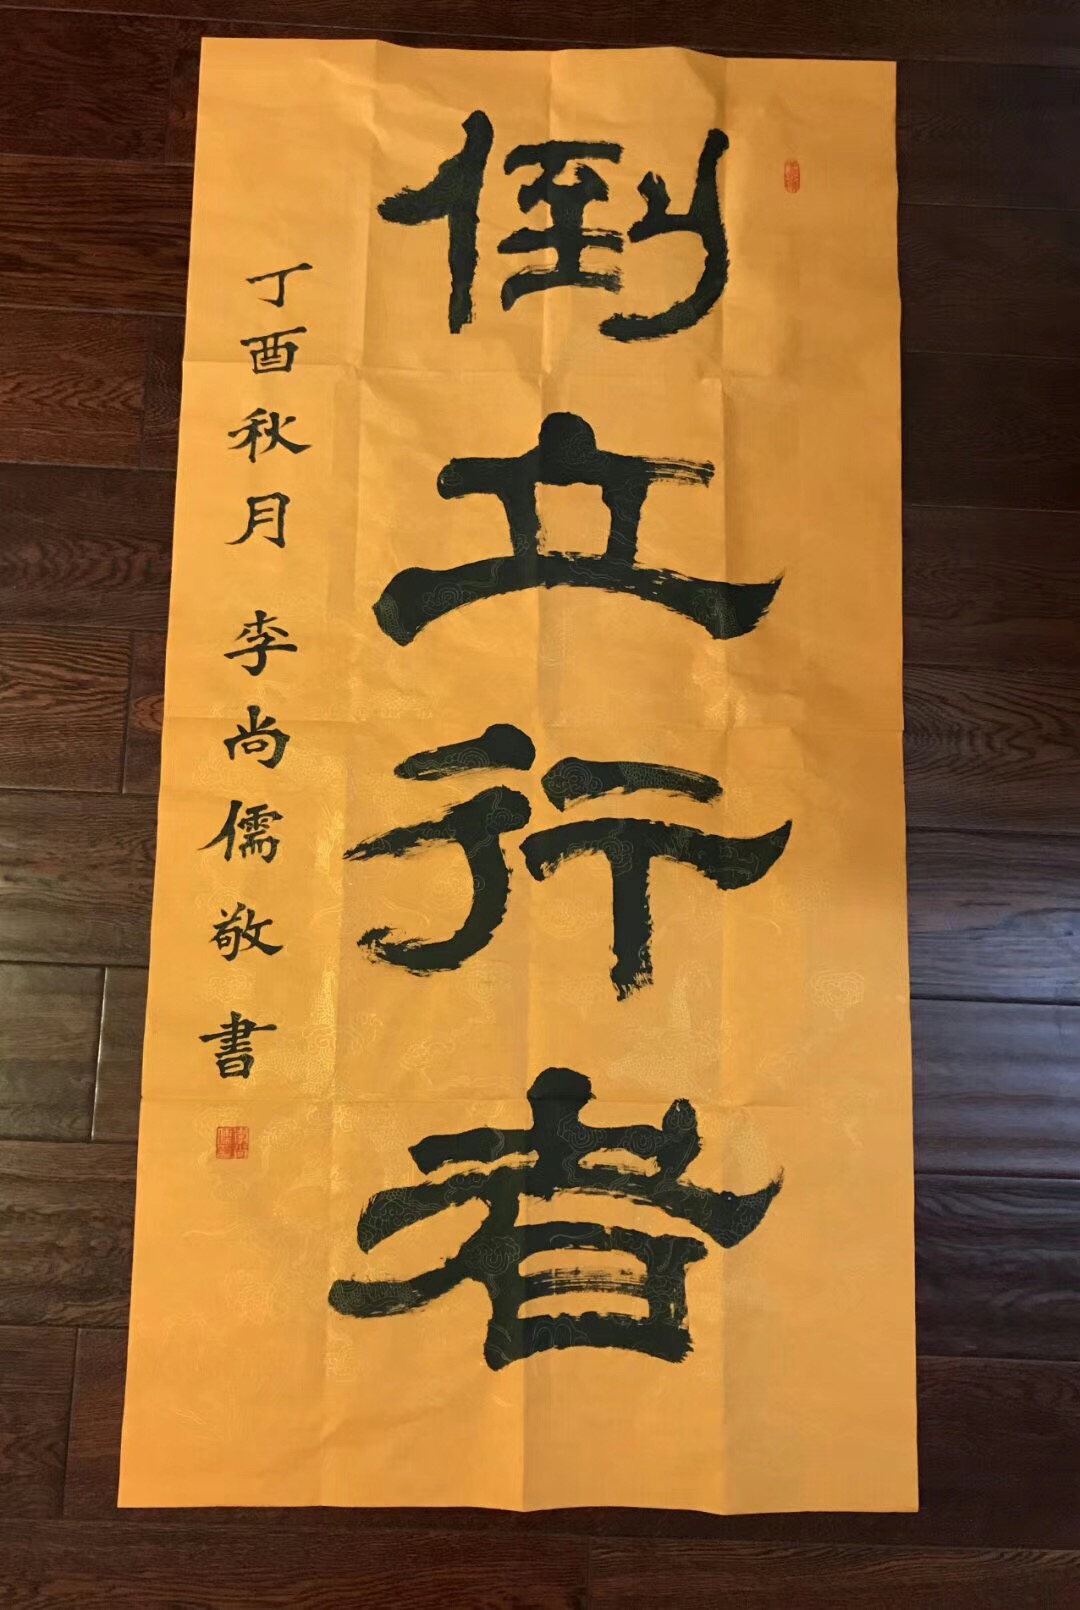 倒立行者
丁酉秋月 李尚儒敬書